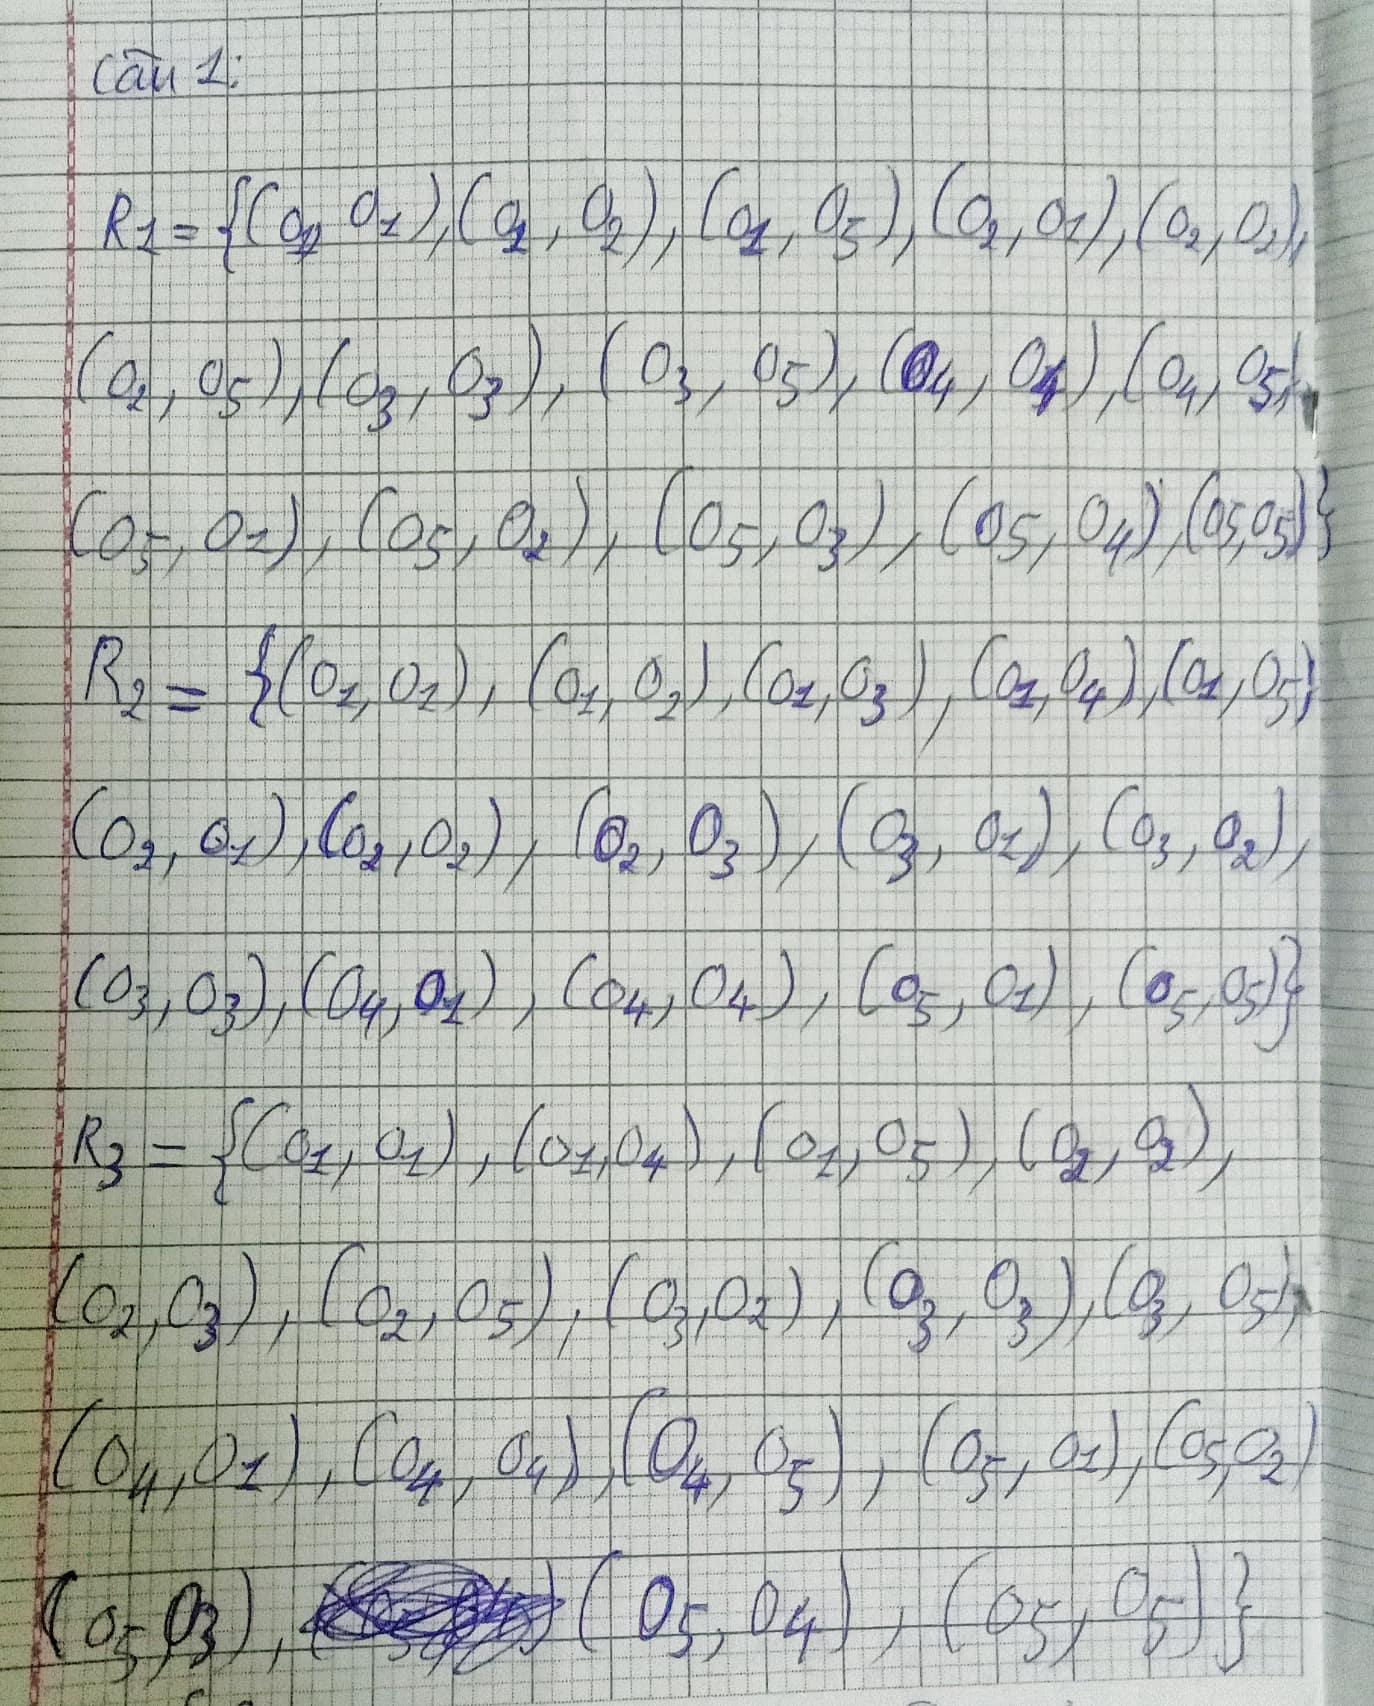 Câu 1:
R1 = {(O1, O1), (O1, O2), (O1, O5), (O2, O1), (O2, O2),
(O2, O5), (O3, O3), (O3, O5), (O4, O4), (O4, O5),
(O5, O1), (O5, O2), (O5, O3), (O5, O4), (O5, O5)}
R2 = {(O1, O1), (O1, O2), (O1, O3), (O1, O4), (O1, O5)
(O2, O1), (O2, O2), (O2, O3), (O3, O1), (O3, O2),
(O3, O3), (O4, O1), (O4, O4), (O5, O1), (O5, O5)}
R3 = {(O1, O1), (O1, O4), (O1, O5), (O2, O2),
(O2, O3), (O2, O5), (O3, O2), (O3, O3), (O3, O5),
(O4, O1), (O4, O4), (O4, O5), (O5, O1), (O5, O2)
(O5, O3), (O5, O4), (O5, O5)}